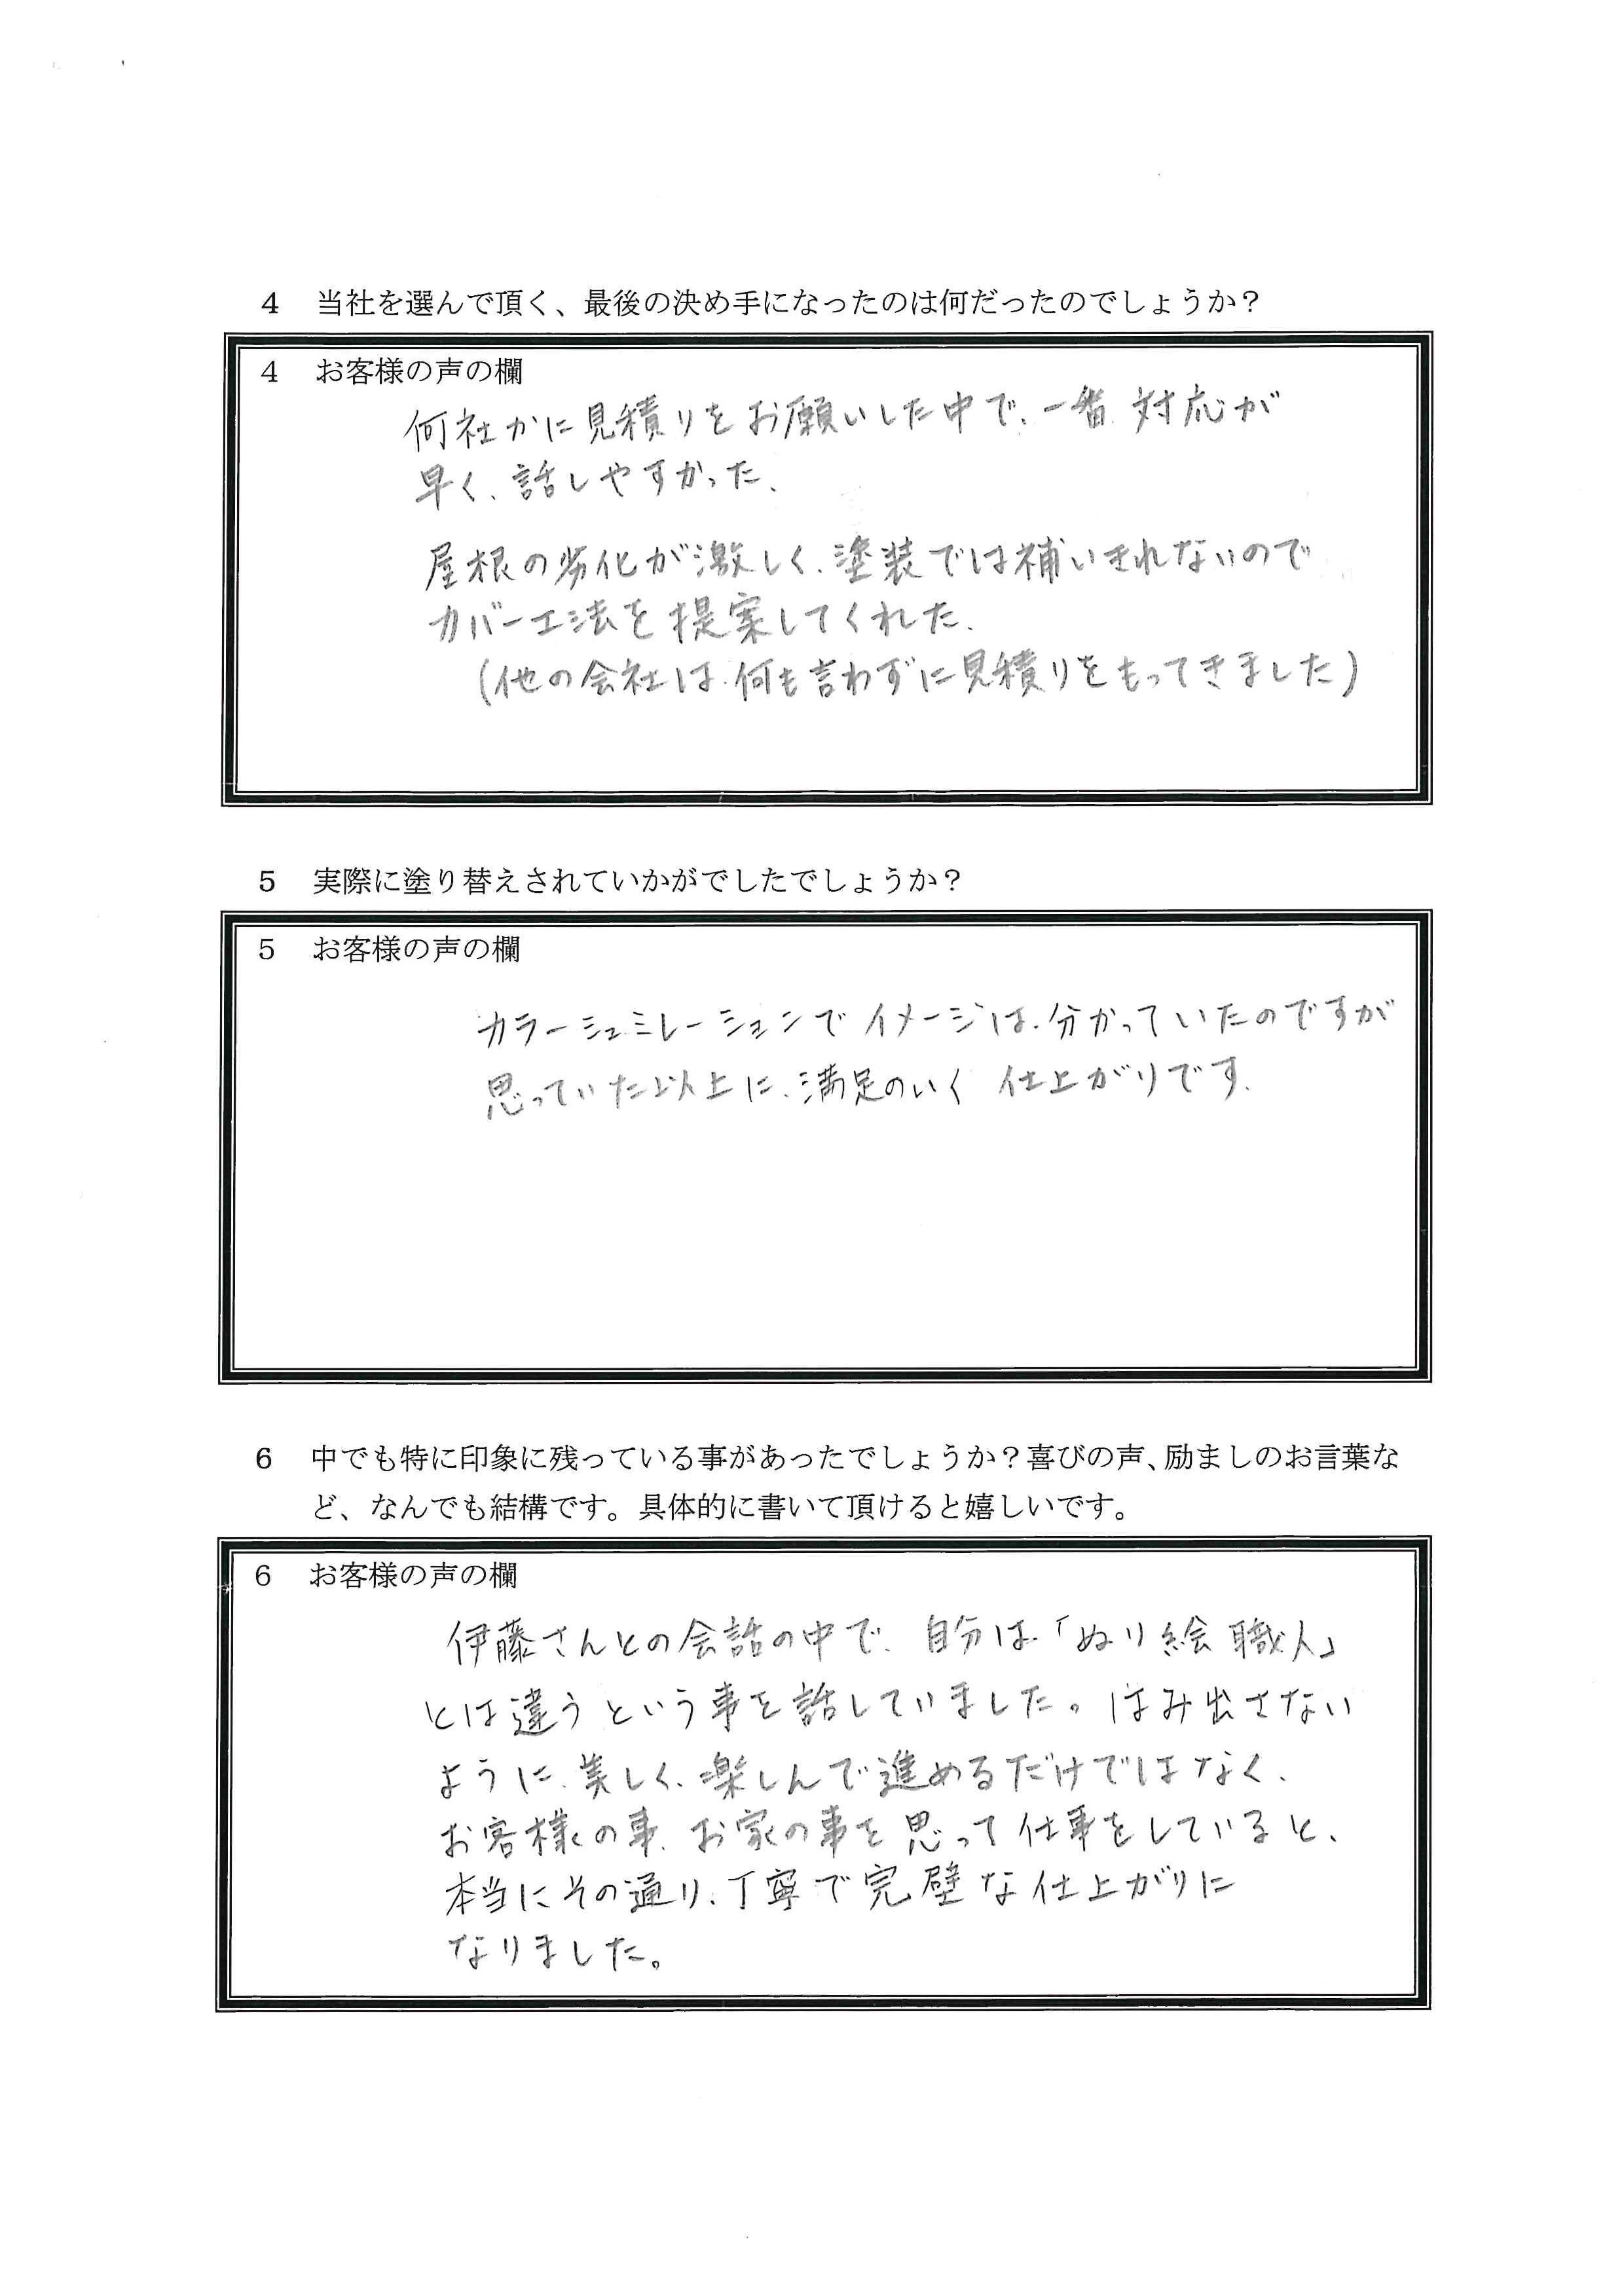 4 当社を選んで頂く、最後の決め手になったのは何だったのでしょうか？
4 お客様の声の欄
何社かに見積りをお願いした中で、一番対応が
早く、話しやすかった、
屋根の劣化が激しく、塗装では補いきれないので
カバー工法を提案してくれた、
(他の会社は、何も言わずに見積りをもってきました)
5 実際に塗り替えされていかがでしたでしょうか？
5 お客様の声の欄
カラーシュミレーションでイメージは、分かっていたのですが
思っていた以上に、満足のいく 仕上がりです、
6 中でも特に印象に残っている事があったでしょうか？喜びの声、励ましのお言葉な
ど、なんでも結構です。具体的に書いて頂けると嬉しいです。
6 お客様の声の欄
伊藤さんとの会話の中で、自分は「ぬり絵職人」
とは違うという事を話していました。はみ出さない
ように、美しく、楽しんで進めるだけではなく、
お客様の事、お家の事を思って仕事をしていると、
本当にその通り、丁寧で完璧な仕上がりに
なりました。